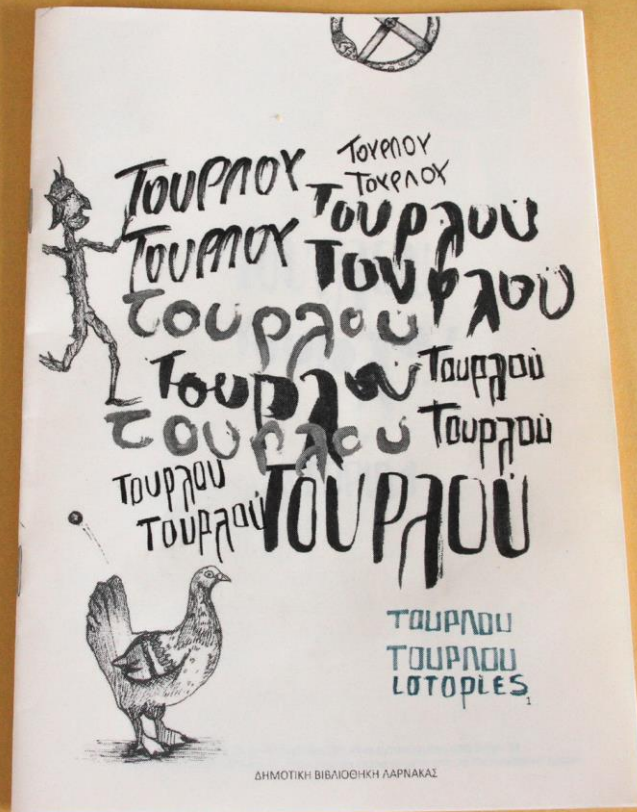 ΤΟΥΡΛΟΥ
ΤΟΥΡΛΟΥ
ΤΟΥΡΛΟΥ
Τουρλού
ΤΟΥΡΛΟΥ
Τουρλού
τουρλού
Τουρλού
Τουρλού
τουρλού
Τουρλού
Τουρλού
Τουρλού
Τουρλού
ΤΟΥΡΛΟΥ
ΤΟΥΡΛΟΥ
ιστορίες
1
ΔΗΜΟΤΙΚΗ ΒΙΒΛΙΟΘΗΚΗ ΛΑΡΝΑΚΑΣ